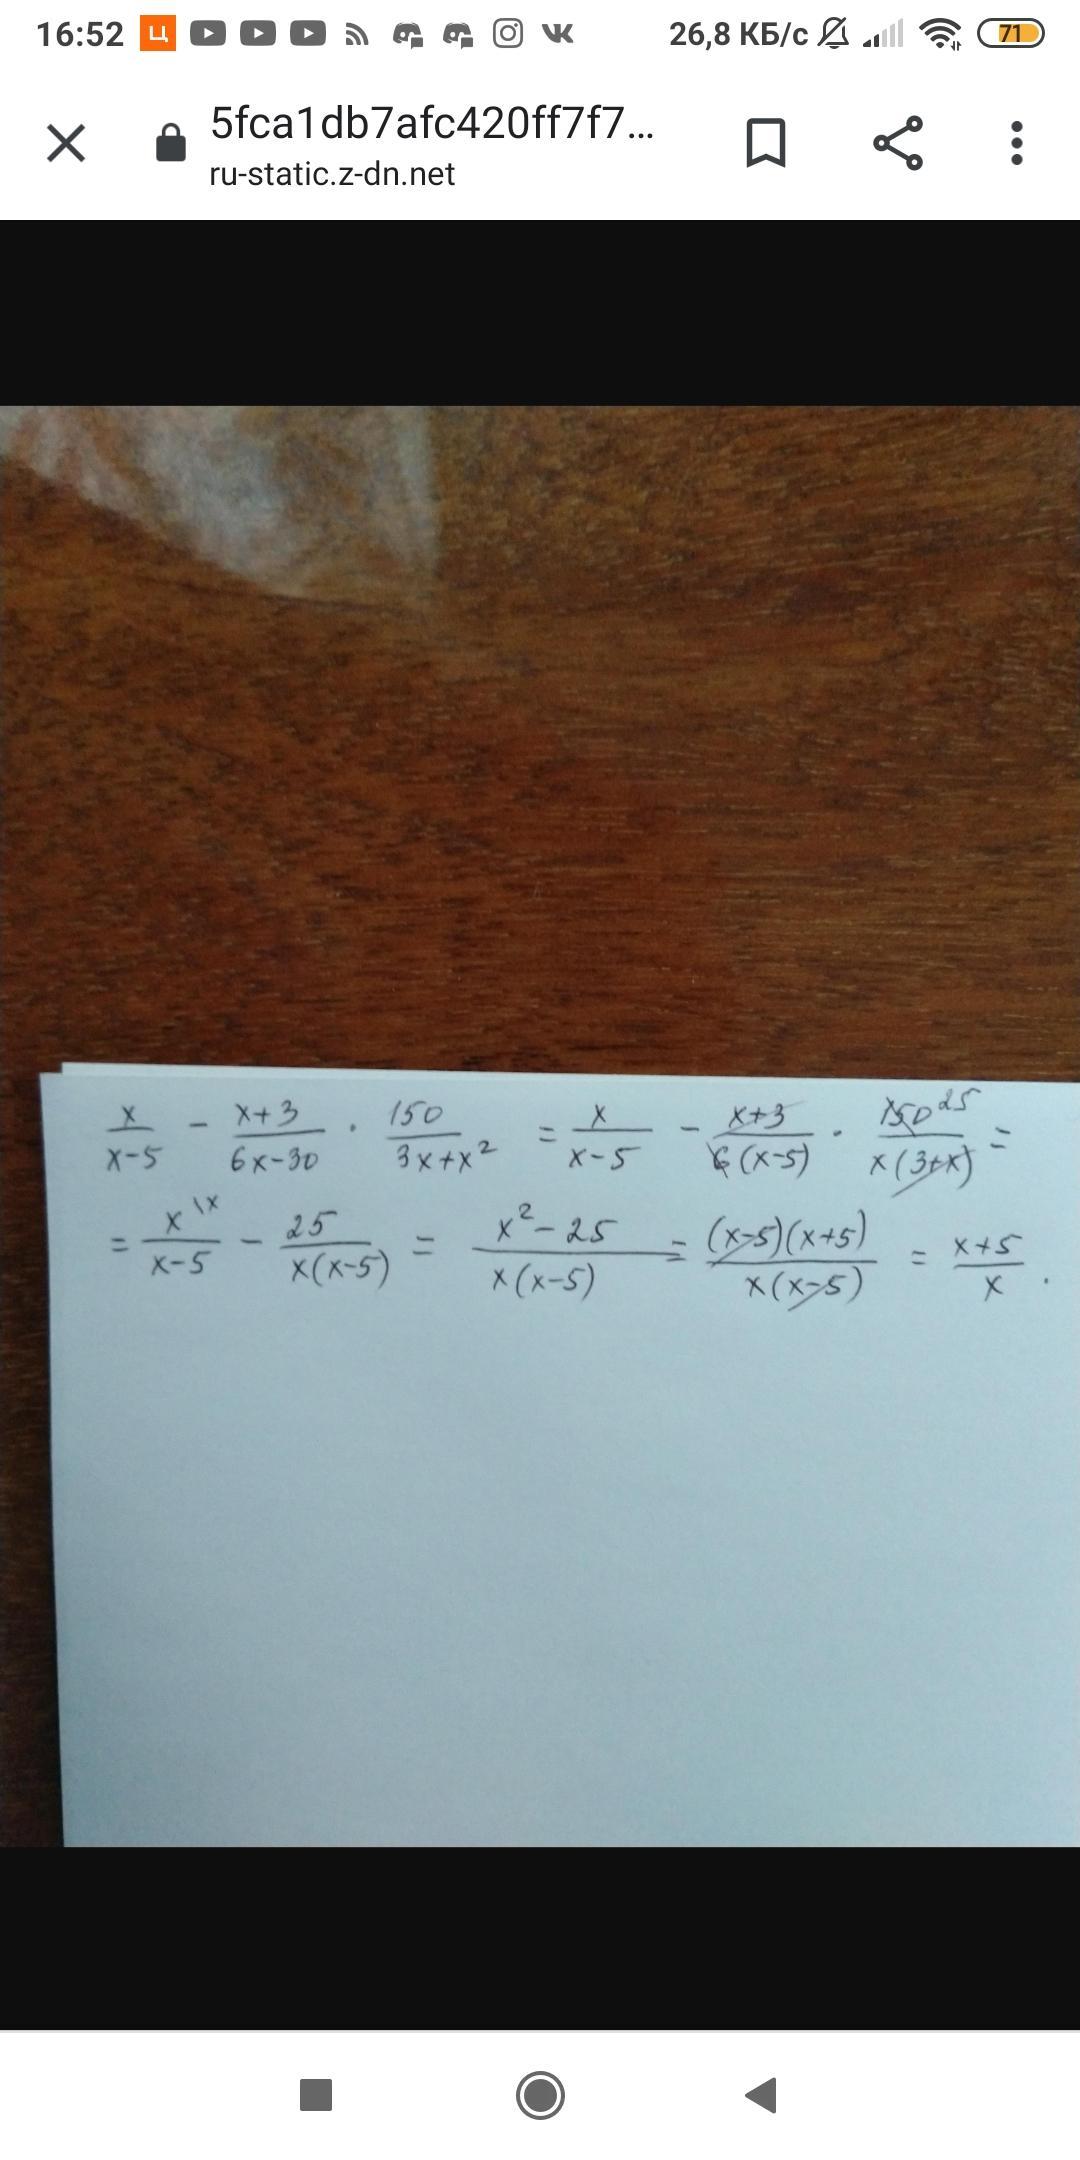 16:52 Ц 26,8 КБ/с 71
5fca1db7afc420ff7f7...
ru-static.z-dn.net
x/(x-5) - (x+3)/(6x-30) · 150/(3x+x²) = x/(x-5) - (x+3)/(6(x-5)) · 150 25/(x(3+x)) =
= x \x/(x-5) - 25/(x(x-5)) = (x²-25)/(x(x-5)) = (x-5)(x+5)/(x(x-5)) = (x+5)/x .